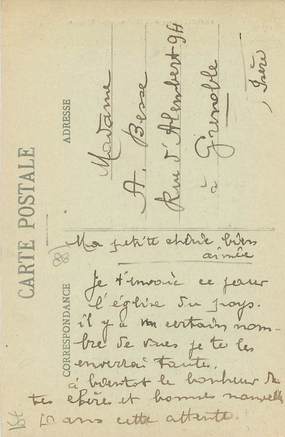 CARTE POSTALE
CORRESPONDANCE
ADRESSE
Madame
A. Besse
Rue d'Alembert 94
à Grenoble
Isère
Ma petite chérie bien
aimée
Je t'envoie ce jour
l'église du pays.
il y a un certain nom-
bre de vues je te les
enverrai toutes.
à bientot le bonheur de
tes chères et bonnes nouvelles
dans cette attente.